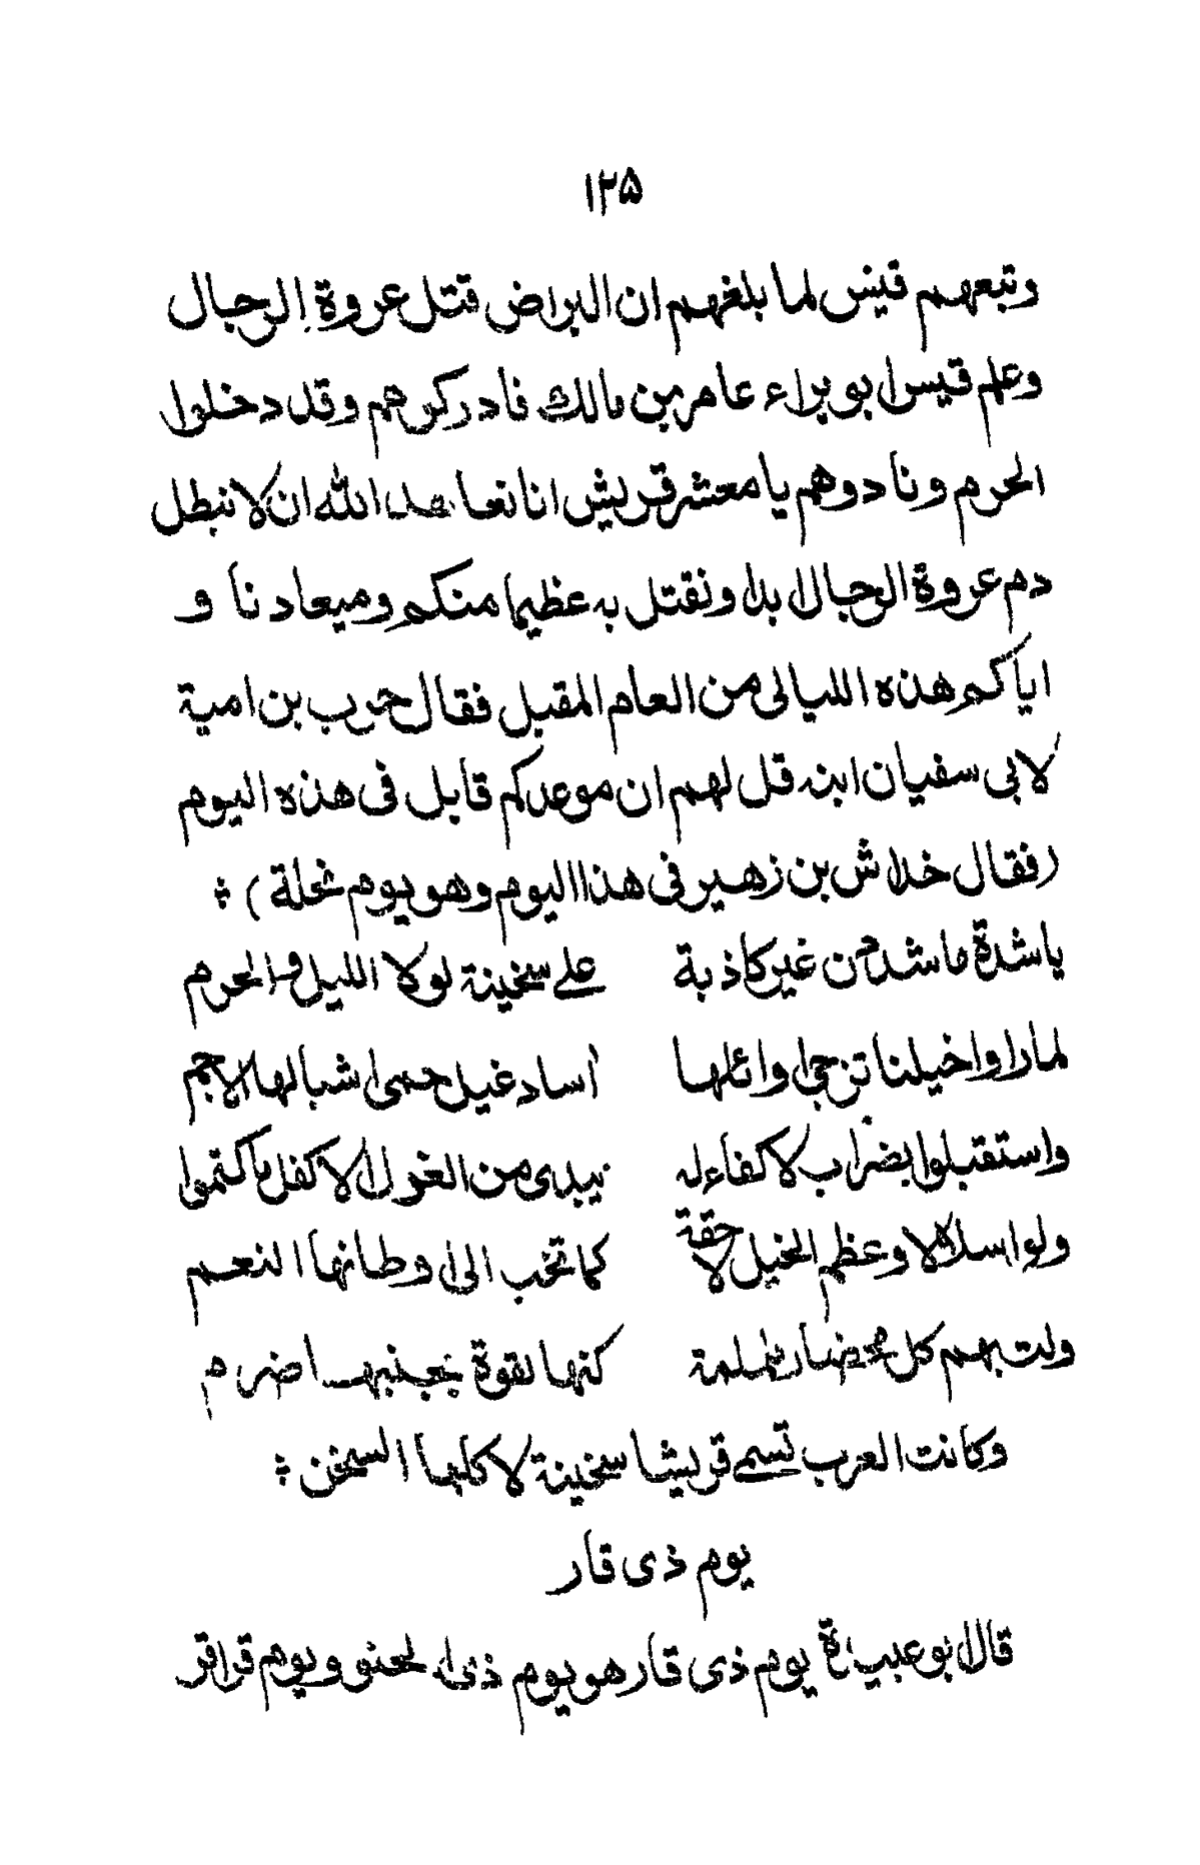 ١٢٥
وتبعهم قيس لما بلغهم ان البراض قتل عروة الرحال
وعلم قيس ابو براء عامر بن مالك فادركوهم وقد دخلوا
الحرم ونادوهم يا معشر قريش انا نعاهد الله ان لا نبطل
دم عروة الرحال ابدا ونقتل به عظيما منكم وميعادنا و
اياكم هذه الليالى من العام المقبل فقال حرب بن امية
لابى سفيان ابنه قل لهم ان موعدكم قابل فى هذه اليوم
(فقال خداش بن زهير فى هذا اليوم وهو يوم نخلة) :
ياشدة ما شددن غير كاذبة على سخينة لولا الليل والحرم
لما راوا خيلنا تزجى اوائلها اساد غيل حمى اشبالها الاجم
واستقبلوا بضراب لا كفاء له يبدى من الغول الاكفل ما كتموا
ولوا سلالا وعظم الخيل لاحقة كما تخب الى اوطانها النعم
ولت بهم كل محضار ململمة كنها لقوة بجنبها ضرم
وكانت العرب تسمى قريشا سخينة لاكلها السخن :
يوم ذى قار
قال ابو عبيدة يوم ذى قار هو يوم ذى الحنو ويوم قراقر